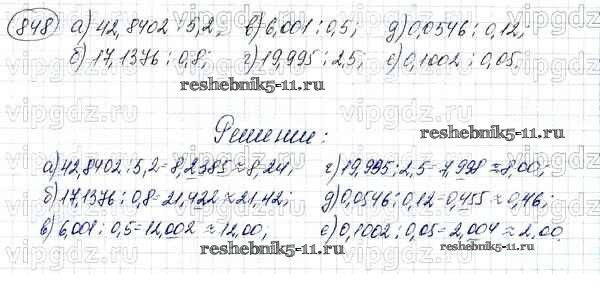 848) а) 42,8402 : 5,2; в) 6,001 : 0,5; д) 0,0546 : 0,12;
б) 17,1376 : 0,8; г) 19,995 : 2,5; е) 0,1002 : 0,05;
reshebnik5-11.ru
Решение:
а) 42,8402 : 5,2 = 8,2385 ≈ 8,24; г) 19,995 : 2,5 = 7,998 ≈ 8,00;
б) 17,1376 : 0,8 = 21,422 ≈ 21,42; д) 0,0546 : 0,12 = 0,455 ≈ 0,46;
в) 6,001 : 0,5 = 12,002 ≈ 12,00; е) 0,1002 : 0,05 = 2,004 ≈ 2,00.
reshebnik5-11.ru
vipgdz.ru